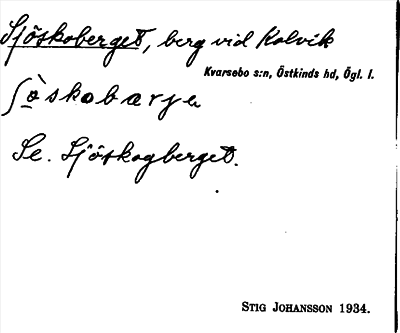 Sjöskoberget, berg vid Kolvik
Kvarsebo s:n, Östkinds hd, Ögl. l.
ʃö̀skobærje
Se. Sjöskogberget.
STIG JOHANSSON 1934.